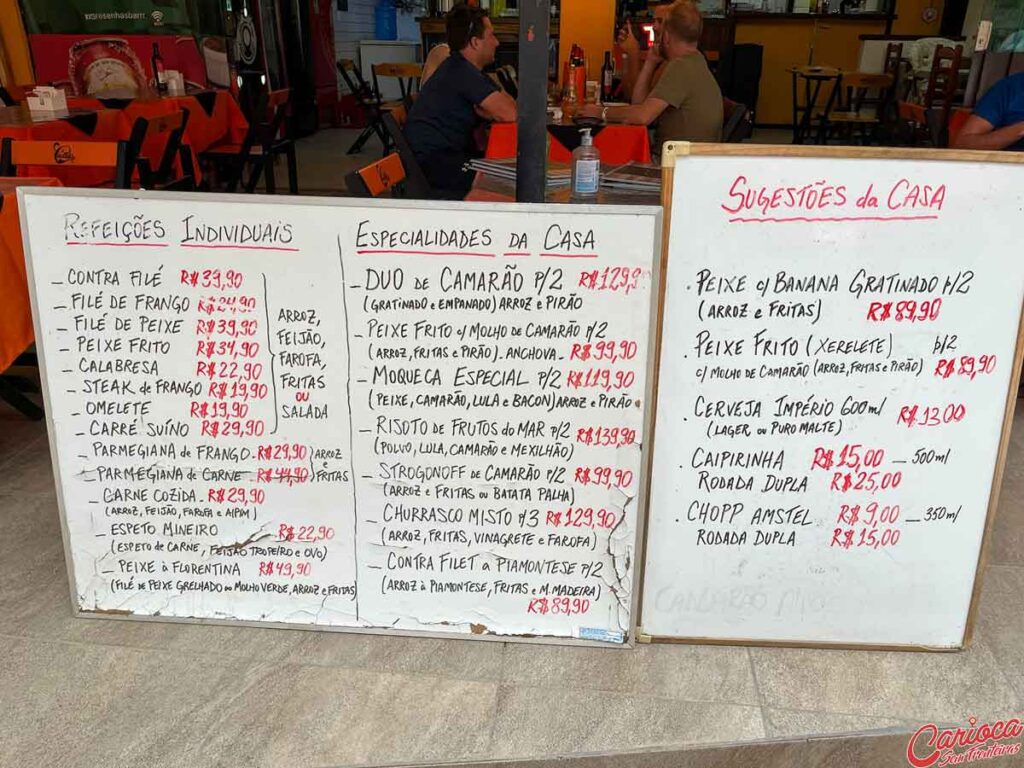 REFEIÇÕES INDIVIDUAIS
- CONTRA FILÉ R$39,90
- FILÉ DE FRANGO R$24,90
- FILÉ DE PEIXE R$39,90
- PEIXE FRITO R$34,90
- CALABRESA R$22,90
- STEAK de FRANGO R$19,90
- OMELETE R$19,90
- CARRÉ SUÍNO R$29,90
ARROZ,
FEIJÃO,
FAROFA,
FRITAS
OU
SALADA
- PARMEGIANA de FRANGO R$29,90
- PARMEGIANA de CARNE R$44,90
ARROZ
e
FRITAS
- CARNE COZIDA - R$29,90
(ARROZ, FEIJÃO, FAROFA e AIPIM)
- ESPETO MINEIRO R$22,90
(ESPETO de CARNE, FEIJÃO TROPEIRO e OVO)
- PEIXE à FLORENTINA R$49,90
(FILÉ DE PEIXE GRELHADO ao MOLHO VERDE, ARROZ e FRITAS)
ESPECIALIDADES DA CASA
- DUO DE CAMARÃO P/2 R$129,9
(GRATINADO e EMPANADO) ARROZ e PIRÃO
- PEIXE FRITO c/ MOLHO DE CAMARÃO P/2
(ARROZ, FRITAS e PIRÃO). ANCHOVA - R$99,90
- MOQUECA ESPECIAL P/2 R$119,90
(PEIXE, CAMARÃO, LULA e BACON) ARROZ e PIRÃO
- RISOTO DE FRUTOS do MAR P/2 R$139,90
(POLVO, LULA, CAMARÃO e MEXILHÃO)
- STROGONOFF de CAMARÃO P/2 R$99,90
(ARROZ e FRITAS OU BATATA PALHA)
- CHURRASCO MISTO P/3 R$129,90
(ARROZ, FRITAS, VINAGRETE e FAROFA)
- CONTRA FILET à PIAMONTESE P/2
(ARROZ à PIAMONTESE, FRITAS e M. MADEIRA)
R$89,90
SUGESTÕES da CASA
. PEIXE c/ BANANA GRATINADO P/2
(ARROZ e FRITAS) R$89,90
. PEIXE FRITO (XERELETE) P/2
c/ MOLHO DE CAMARÃO (ARROZ, FRITAS e PIRÃO) R$89,90
. CERVEJA IMPÉRIO 600ml R$13,00
(LAGER, ou PURO MALTE)
. CAIPIRINHA R$15,00 - 500ml
RODADA DUPLA R$25,00
. CHOPP AMSTEL R$9,00 - 350ml
RODADA DUPLA R$15,00
Carioca
Sem Fronteiras